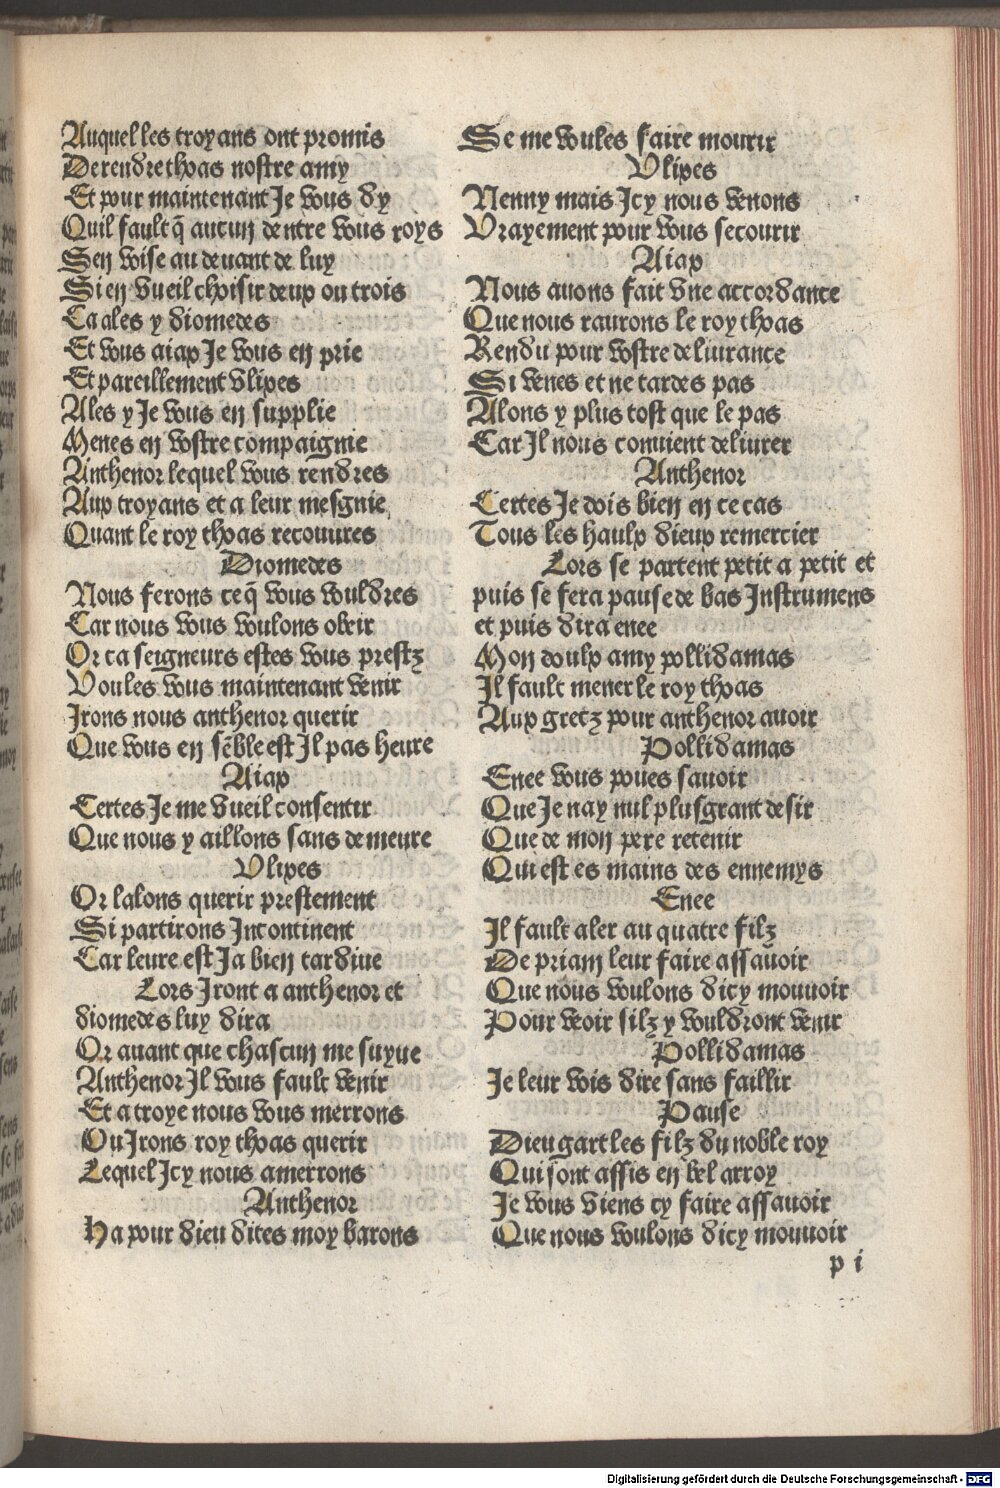 Auquel les troyans ont promis
De rendre thoas nostre amy
Et pour maintenant Je vous dy
Quil fault q̄ aucun dentre vous roys
Sen voise au deuant de luy
Si en vueil choisir deux ou trois
Ca ales y diomedes
Et vous aiax Je vous en prie
Et pareillement vlixes
Ales y Je vous en supplie
Menes en vostre compaignie
Anthenor lequel vous rendres
Aux troyans et a leur mesgnie
Quant le roy thoas recouures
Diomedes
Nous ferons ce q̄ vous vouldres
Car nous vous voulons obeir
Or ca seigneurs estes vous prestz
Voules vous maintenant venir
Irons nous anthenor querir
Que vous en sēble est Il pas heure
Aiax
Certes Je me vueil consentir
Que nous y aillons sans demeure
Vlixes
Or lalons querir prestement
Si partirons Incontinent
Car leure est Ja bien tardiue
Lors Iront a anthenor et
diomedes luy dira
Or auant que chascun me suyue
Anthenor Il vous fault venir
Et a troye nous vous merrons
Ou Irons roy thoas querir
Lequel Icy nous amerrons
Anthenor
Ha pour dieu dites moy barons
Se me voules faire mourir
Vlixes
Nenny mais Icy nous venons
Vrayement pour vous secourir
Aiax
Nous auons fait vne accordance
Que nous raurons le roy thoas
Rendu pour vostre deliurance
Si venes et ne tardes pas
Alons y plus tost que le pas
Car Il nous conuient deliurer
Anthenor
Certes Je dois bien en ce cas
Tous les haulx dieux remercier
Lors se partent petit a petit et
puis se fera pause de bas Instrumens
et puis dira enee
Mon doulx amy pollidamas
Il fault mener le roy thoas
Aux gretz pour anthenor auoir
Pollidamas
Enee vous poues sauoir
Que Je nay nul plus grant desir
Que de mon pere retenir
Qui est es mains des ennemys
Enee
Il fault aler au quatre filz
De priam leur faire assauoir
Que nous voulons dicy mouuoir
Pour veoir silz y vouldront venir
Pollidamas
Je leur vois dire sans faillir
Pause
Dieu gart les filz du noble roy
Qui sont assis en bel arroy
Je vous viens cy faire assauoir
Que nous voulons dicy mouuoir
p i
Digitalisierung gefördert durch die Deutsche Forschungsgemeinschaft - DFG